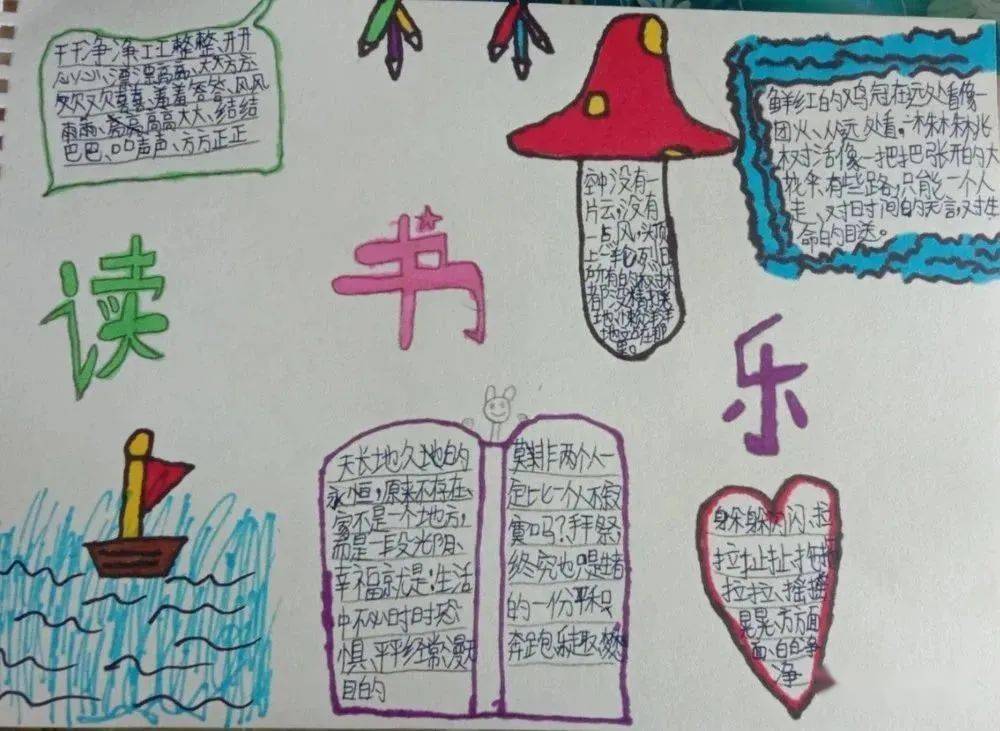 干干净净、工工整整、开开
心心、漂漂亮亮、大大方方、
欢欢喜喜、羞羞答答、风风
雨雨、高高大大、结结
巴巴、口口声声、方方正正
读
书
乐
空中没有一
片云，没有
一点风，头顶
上一轮烈日
所有的树木
都
地
地
里。
鲜红的鸡冠在远处看像一
团火、从远处看，一株株桃
树活像一把把张开的大
伞，有些路，只能一个人
走、对旧时间的无言，对生
命的目送。
天长地久地的
永恒，原来不存在、
家不是一个地方，
而是一段光阴、
幸福就是：生活
中不必时时恐
惧、平平经常、漫无
目的
莫非两个人一
定比一个人不寂
寞吗？拜祭，
终究也只是生者
的一份平和只
奔跑乐趣
躲躲闪闪、拉
拉扯扯、拖拖
拉拉、摇摇
晃晃、方方面
面、白白净
净